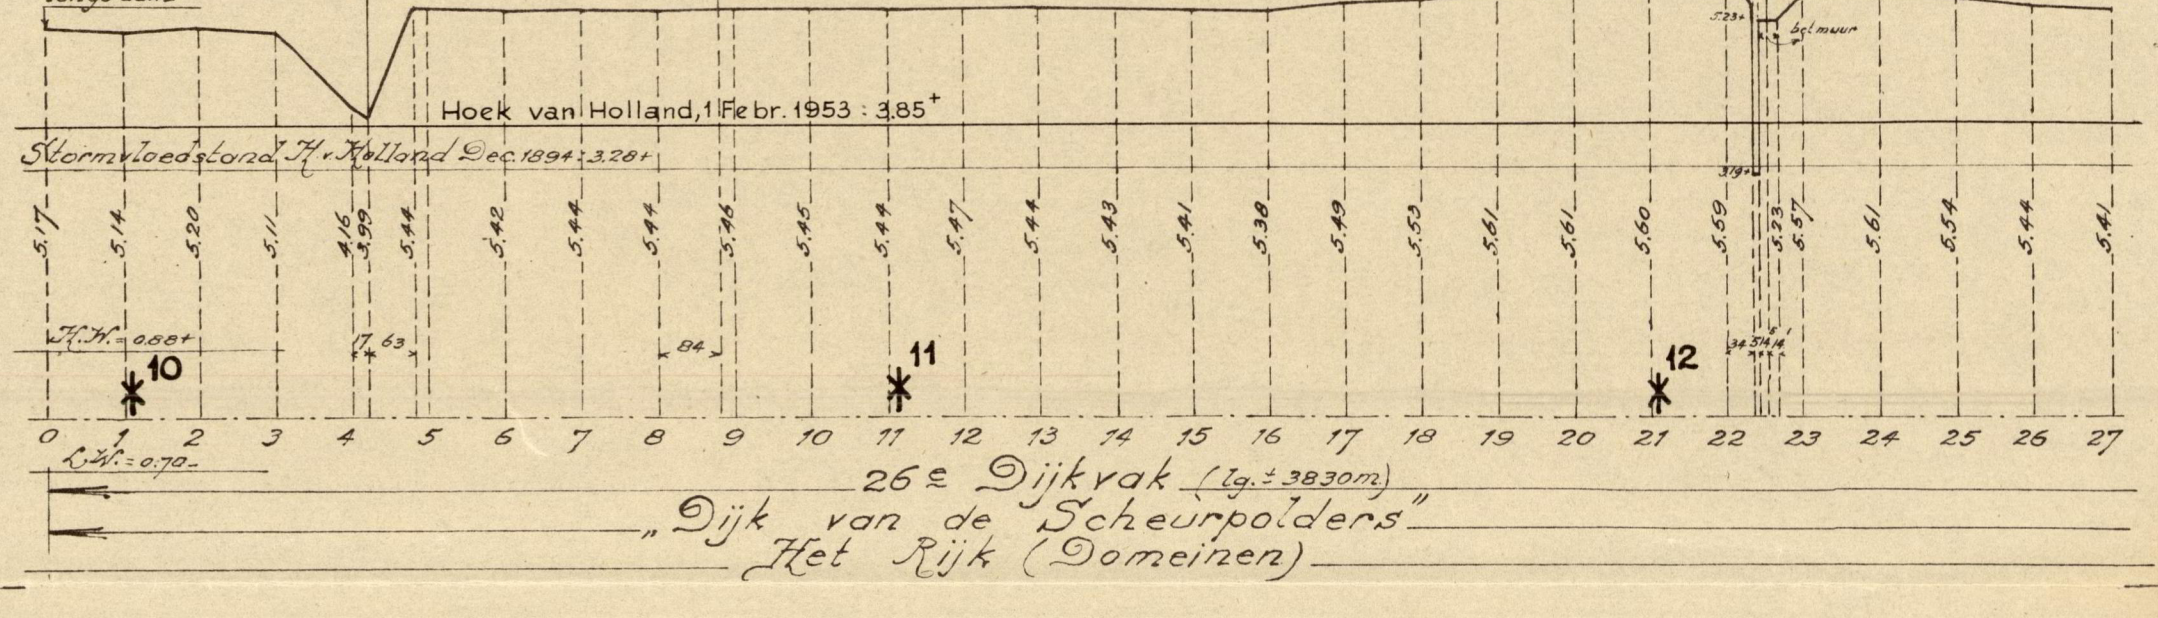 5.23+
bet muur
Hoek van Holland, 1 Febr. 1953 : 3.85+
Stormvloedstand H.v. Holland Dec. 1894 : 3.28+
3.19+
5.17 5.14 5.20 5.11 4.16 3.99 5.44 5.42 5.44 5.44 5.46 5.45 5.44 5.47 5.44 5.43 5.41 5.38 5.49 5.53 5.61 5.61 5.60 5.59 5.23 5.57 5.61 5.54 5.44 5.41
H.W. = 0.88+
17 63 84 34 5 14 5 14 1
10 11 12
0 1 2 3 4 5 6 7 8 9 10 11 12 13 14 15 16 17 18 19 20 21 22 23 24 25 26 27
L.W. = 0.70-
26e Dijkvak (lg. ± 3830m)
„Dijk van de Scheurpolders"
Het Rijk (Domeinen)